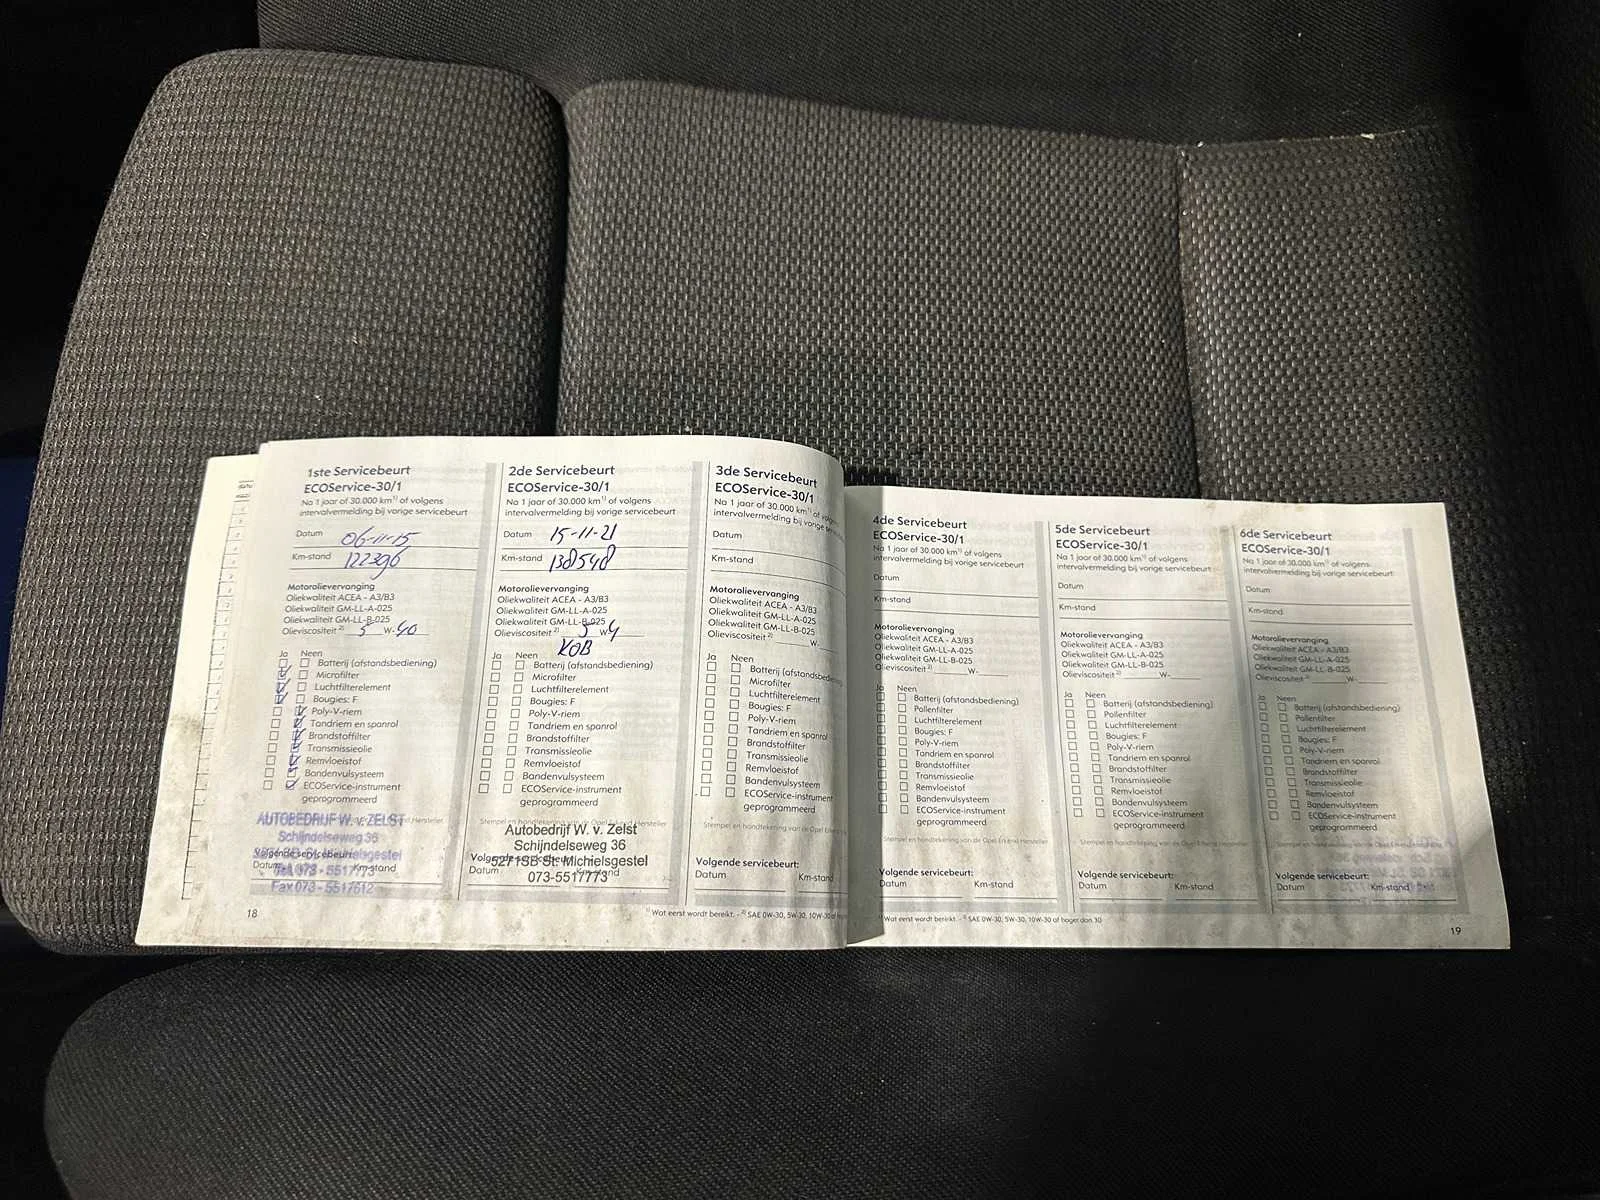 1ste Servicebeurt
ECOService-30/1
Na 1 jaar of 30.000 km1) of volgens
intervalvermelding bij vorige servicebeurt
Datum 06-11-15
Km-stand 122396
Motorolievervanging
Oliekwaliteit ACEA - A3/B3
Oliekwaliteit GM-LL-A-025
Oliekwaliteit GM-LL-B-025
Olieviscositeit 2) 5 W- 40
Ja Neen
Batterij (afstandsbediening)
Microfilter
Luchtfilterelement
Bougies: F
Poly-V-riem
Tandriem en spanrol
Brandstoffilter
Transmissieolie
Remvloeistof
Bandenvulsysteem
ECOService-instrument
geprogrammeerd
AUTOBEDRIJF W. v. ZELST
Schijndelseweg 36
Volgende servicebeurt:
Datum Km-stand
Tel. 073 - 5517773
Fax 073 - 5517612
18
2de Servicebeurt
ECOService-30/1
Na 1 jaar of 30.000 km1) of volgens
intervalvermelding bij vorige servicebeurt
Datum 15-11-21
Km-stand 138548
Motorolievervanging
Oliekwaliteit ACEA - A3/B3
Oliekwaliteit GM-LL-A-025
Oliekwaliteit GM-LL-B-025
Olieviscositeit 2) 5 W 4
Ja Neen
Batterij (afstandsbediening)
Microfilter
Luchtfilterelement
Bougies: F
Poly-V-riem
Tandriem en spanrol
Brandstoffilter
Transmissieolie
Remvloeistof
Bandenvulsysteem
ECOService-instrument
geprogrammeerd
Autobedrijf W. v. Zelst
Schijndelseweg 36
5271SB St. Michielsgestel
073-5517773
Volgende servicebeurt:
Datum Km-stand
3de Servicebeurt
ECOService-30/1
Na 1 jaar of 30.000 km1) of volgens
intervalvermelding bij vorige
Datum
Km-stand
Motorolievervanging
Oliekwaliteit ACEA - A3/B3
Oliekwaliteit GM-LL-A-025
Oliekwaliteit GM-LL-B-025
Olieviscositeit 2) W-
Ja Neen
Batterij
Microfilter
Luchtfilterelement
Bougies: F
Poly-V-riem
Tandriem en spanrol
Brandstoffilter
Transmissieolie
Remvloeistof
Bandenvulsysteem
ECOService-instrument
geprogrammeerd
Stempel en handtekening van de Opel
Volgende servicebeurt:
Datum Km-stand
1) Wat eerst wordt bereikt. - 2) SAE 0W-30, 5W-30, 10W-30 of
4de Servicebeurt
ECOService-30/1
Na 1 jaar of 30.000 km1) of volgens
intervalvermelding bij vorige servicebeurt
Datum
Km-stand
Motorolievervanging
Oliekwaliteit ACEA - A3/B3
Oliekwaliteit GM-LL-A-025
Oliekwaliteit GM-LL-B-025
Olieviscositeit 2) W-
Ja Neen
Batterij (afstandsbediening)
Pollenfilter
Luchtfilterelement
Bougies: F
Poly-V-riem
Tandriem en spanrol
Brandstoffilter
Transmissieolie
Remvloeistof
Bandenvulsysteem
ECOService-instrument
geprogrammeerd
Stempel en handtekening van de Opel Erkend Hersteller
Volgende servicebeurt:
Datum Km-stand
1) Wat eerst wordt bereikt. - 2) SAE 0W-30, 5W-30, 10W-30 of hoger dan 30
5de Servicebeurt
ECOService-30/1
Na 1 jaar of 30.000 km1) of volgens
intervalvermelding bij vorige servicebeurt
Datum
Km-stand
Motorolievervanging
Oliekwaliteit ACEA - A3/B3
Oliekwaliteit GM-LL-A-025
Oliekwaliteit GM-LL-B-025
Olieviscositeit 2) W-
Ja Neen
Batterij (afstandsbediening)
Pollenfilter
Luchtfilterelement
Bougies: F
Poly-V-riem
Tandriem en spanrol
Brandstoffilter
Transmissieolie
Remvloeistof
Bandenvulsysteem
ECOService-instrument
geprogrammeerd
Stempel en handtekening van de Opel Erkend Hersteller
Volgende servicebeurt:
Datum Km-stand
6de Servicebeurt
ECOService-30/1
Na 1 jaar of 30.000 km1) of volgens
intervalvermelding bij vorige servicebeurt
Datum
Km-stand
Motorolievervanging
Oliekwaliteit ACEA - A3/B3
Oliekwaliteit GM-LL-A-025
Oliekwaliteit GM-LL-B-025
Olieviscositeit 2) W-
Ja Neen
Batterij (afstandsbediening)
Pollenfilter
Luchtfilterelement
Bougies: F
Poly-V-riem
Tandriem en spanrol
Brandstoffilter
Transmissieolie
Remvloeistof
Bandenvulsysteem
ECOService-instrument
geprogrammeerd
Stempel en handtekening van de Opel Erkend Hersteller
Volgende servicebeurt:
Datum Km-stand
19